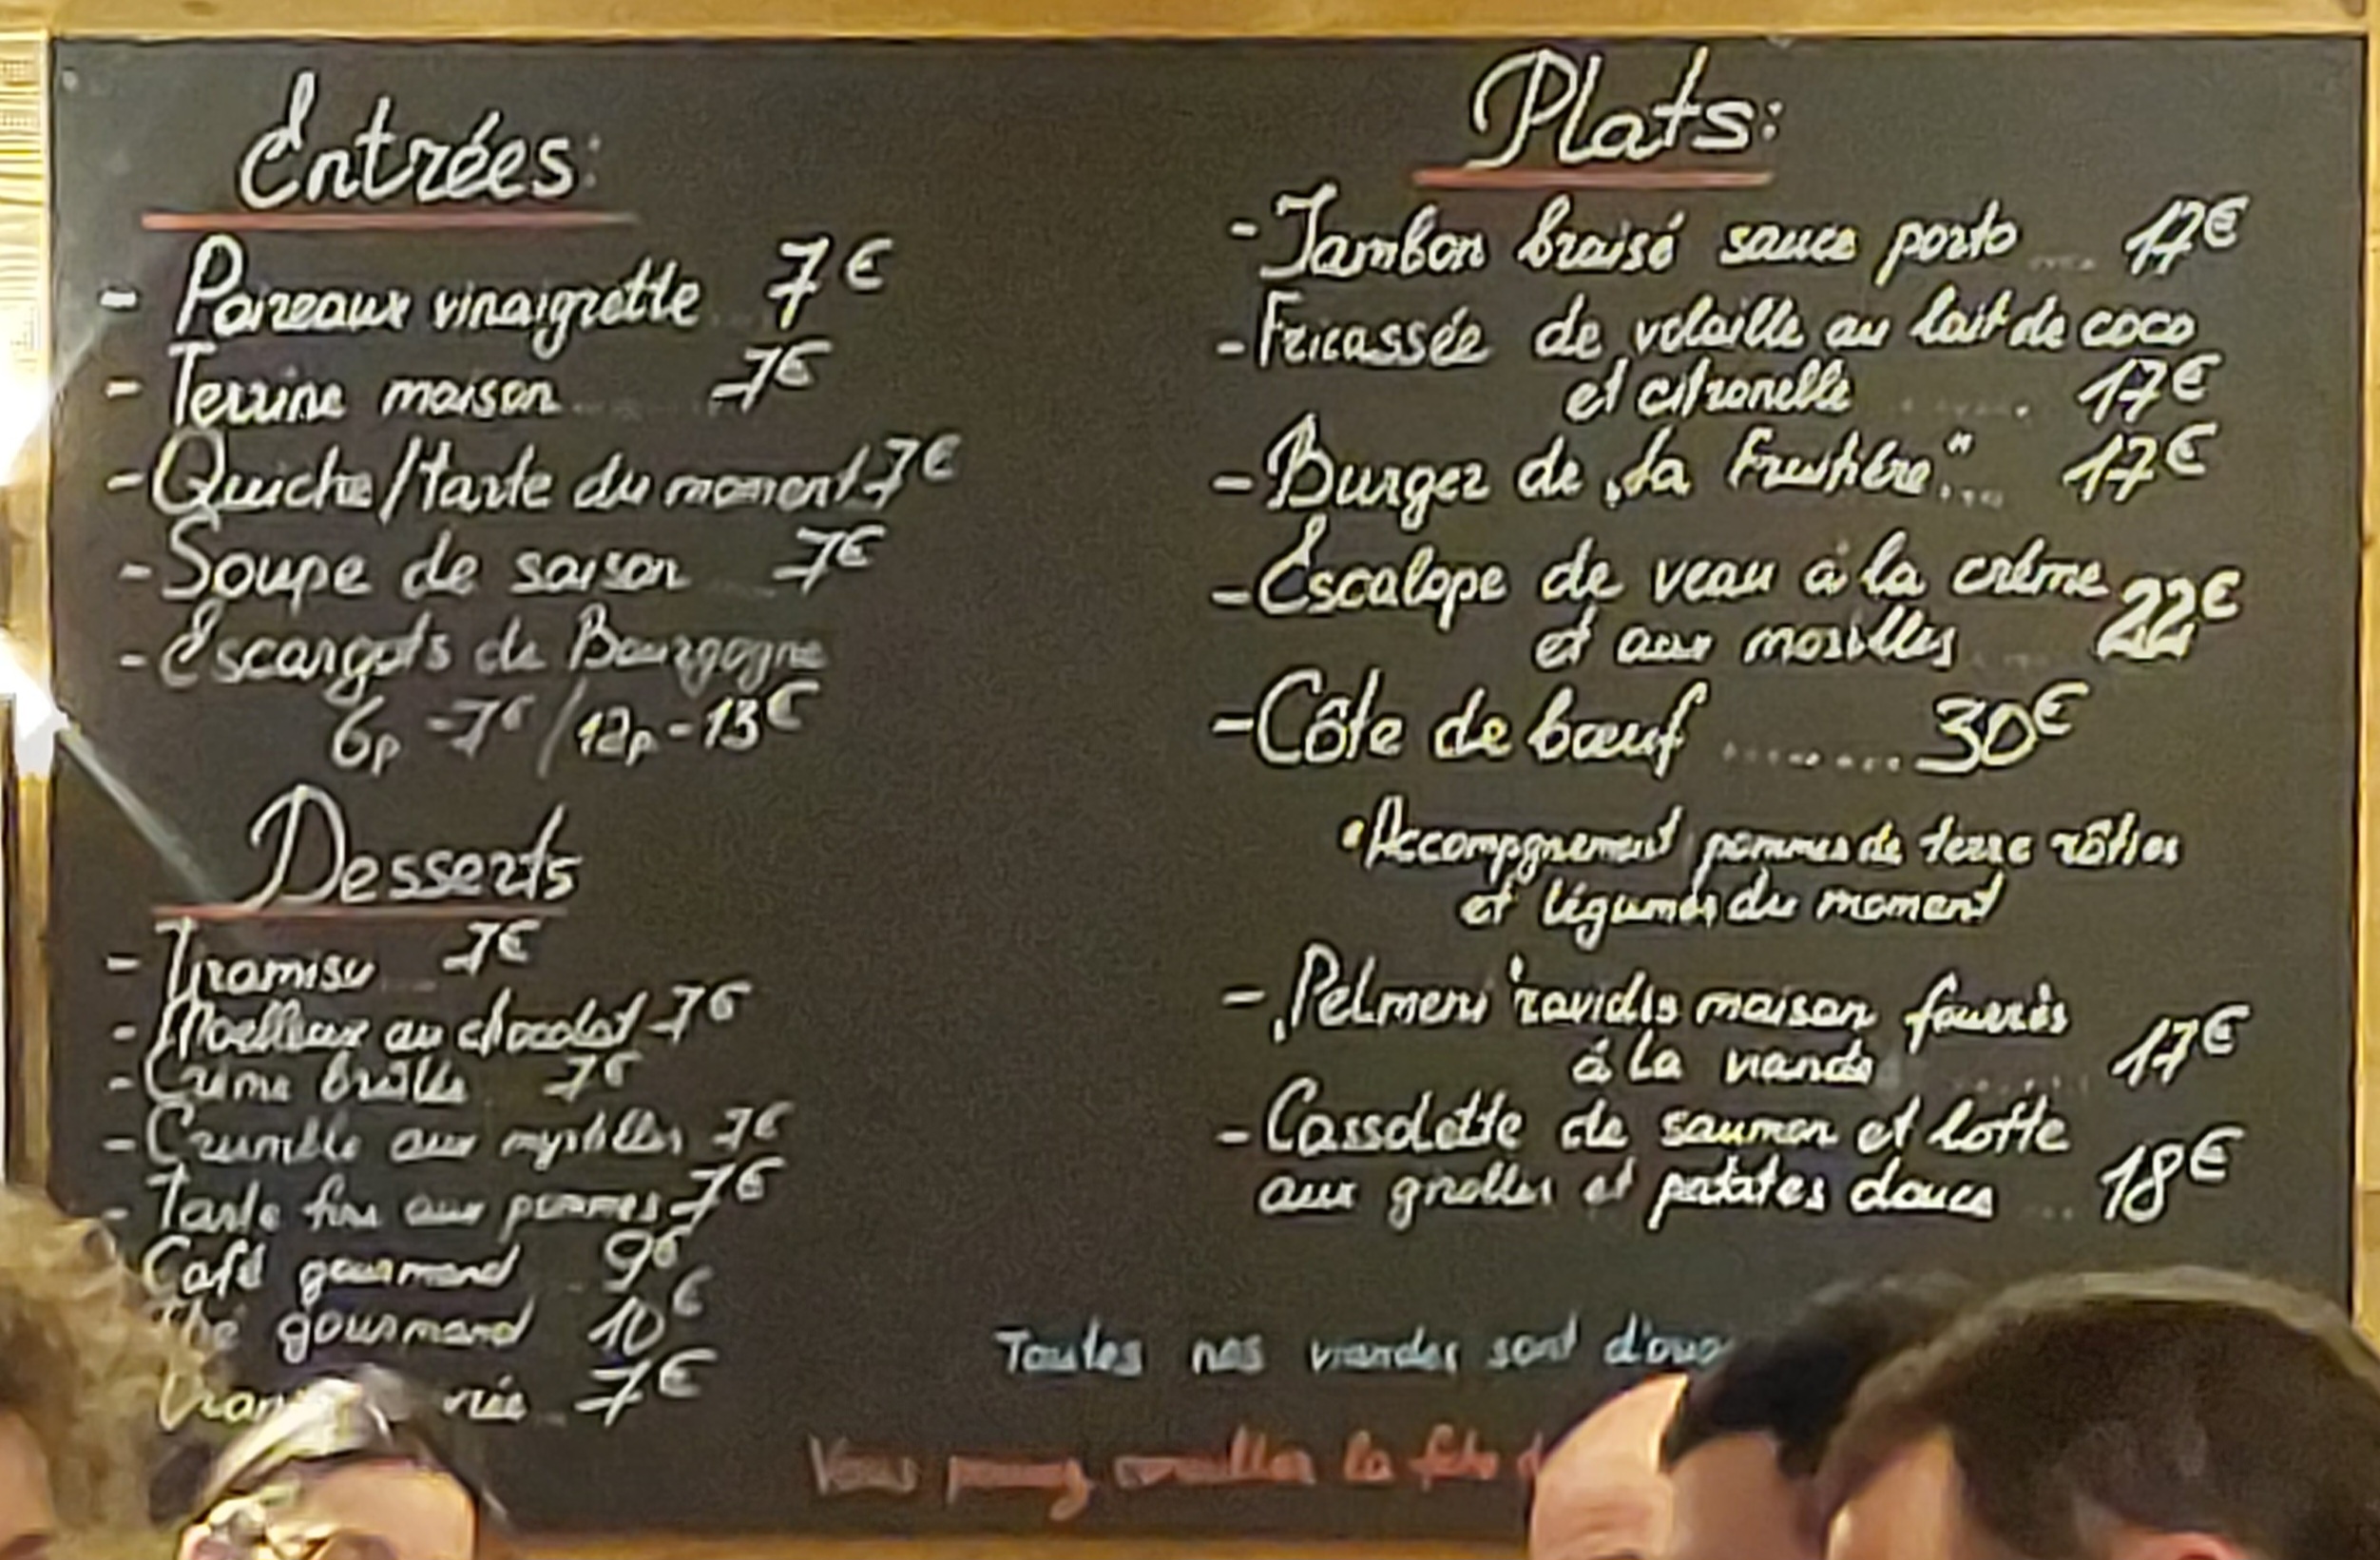 Entrées:
- Poireaux vinaigrette 7€
- Terrine maison ........ 7€
- Quiche/tarte du moment 7€
- Soupe de saison ... 7€
- Escargots de Bourgogne
6p - 7€ / 12p - 13€
Desserts
- Tiramisu ... 7€
- Moelleux au chocolat 7€
- Crème brûlée 7€
- Crumble aux myrtilles 7€
- Tarte fine aux pommes 7€
Café gourmand .. 9€
Thé gourmand 10€
7€
Plats:
- Jambon braisé sauce porto .... 17€
- Fricassée de volaille au lait de coco
et citronelle ....... 17€
- Burger de "La Fruitière" .... 17€
- Escalope de veau à la crème
et aux morilles .... 22€
- Côte de bœuf ......... 30€
*Accompgnement pommes de terre rôties
et légumes du moment
- "Pelmeni" raviolis maison fourrés
à la viande ....... 17€
- Cassolette de saumon et lotte
aux girolles et patates douces ... 18€
Toutes nos viandes sont
Vous la